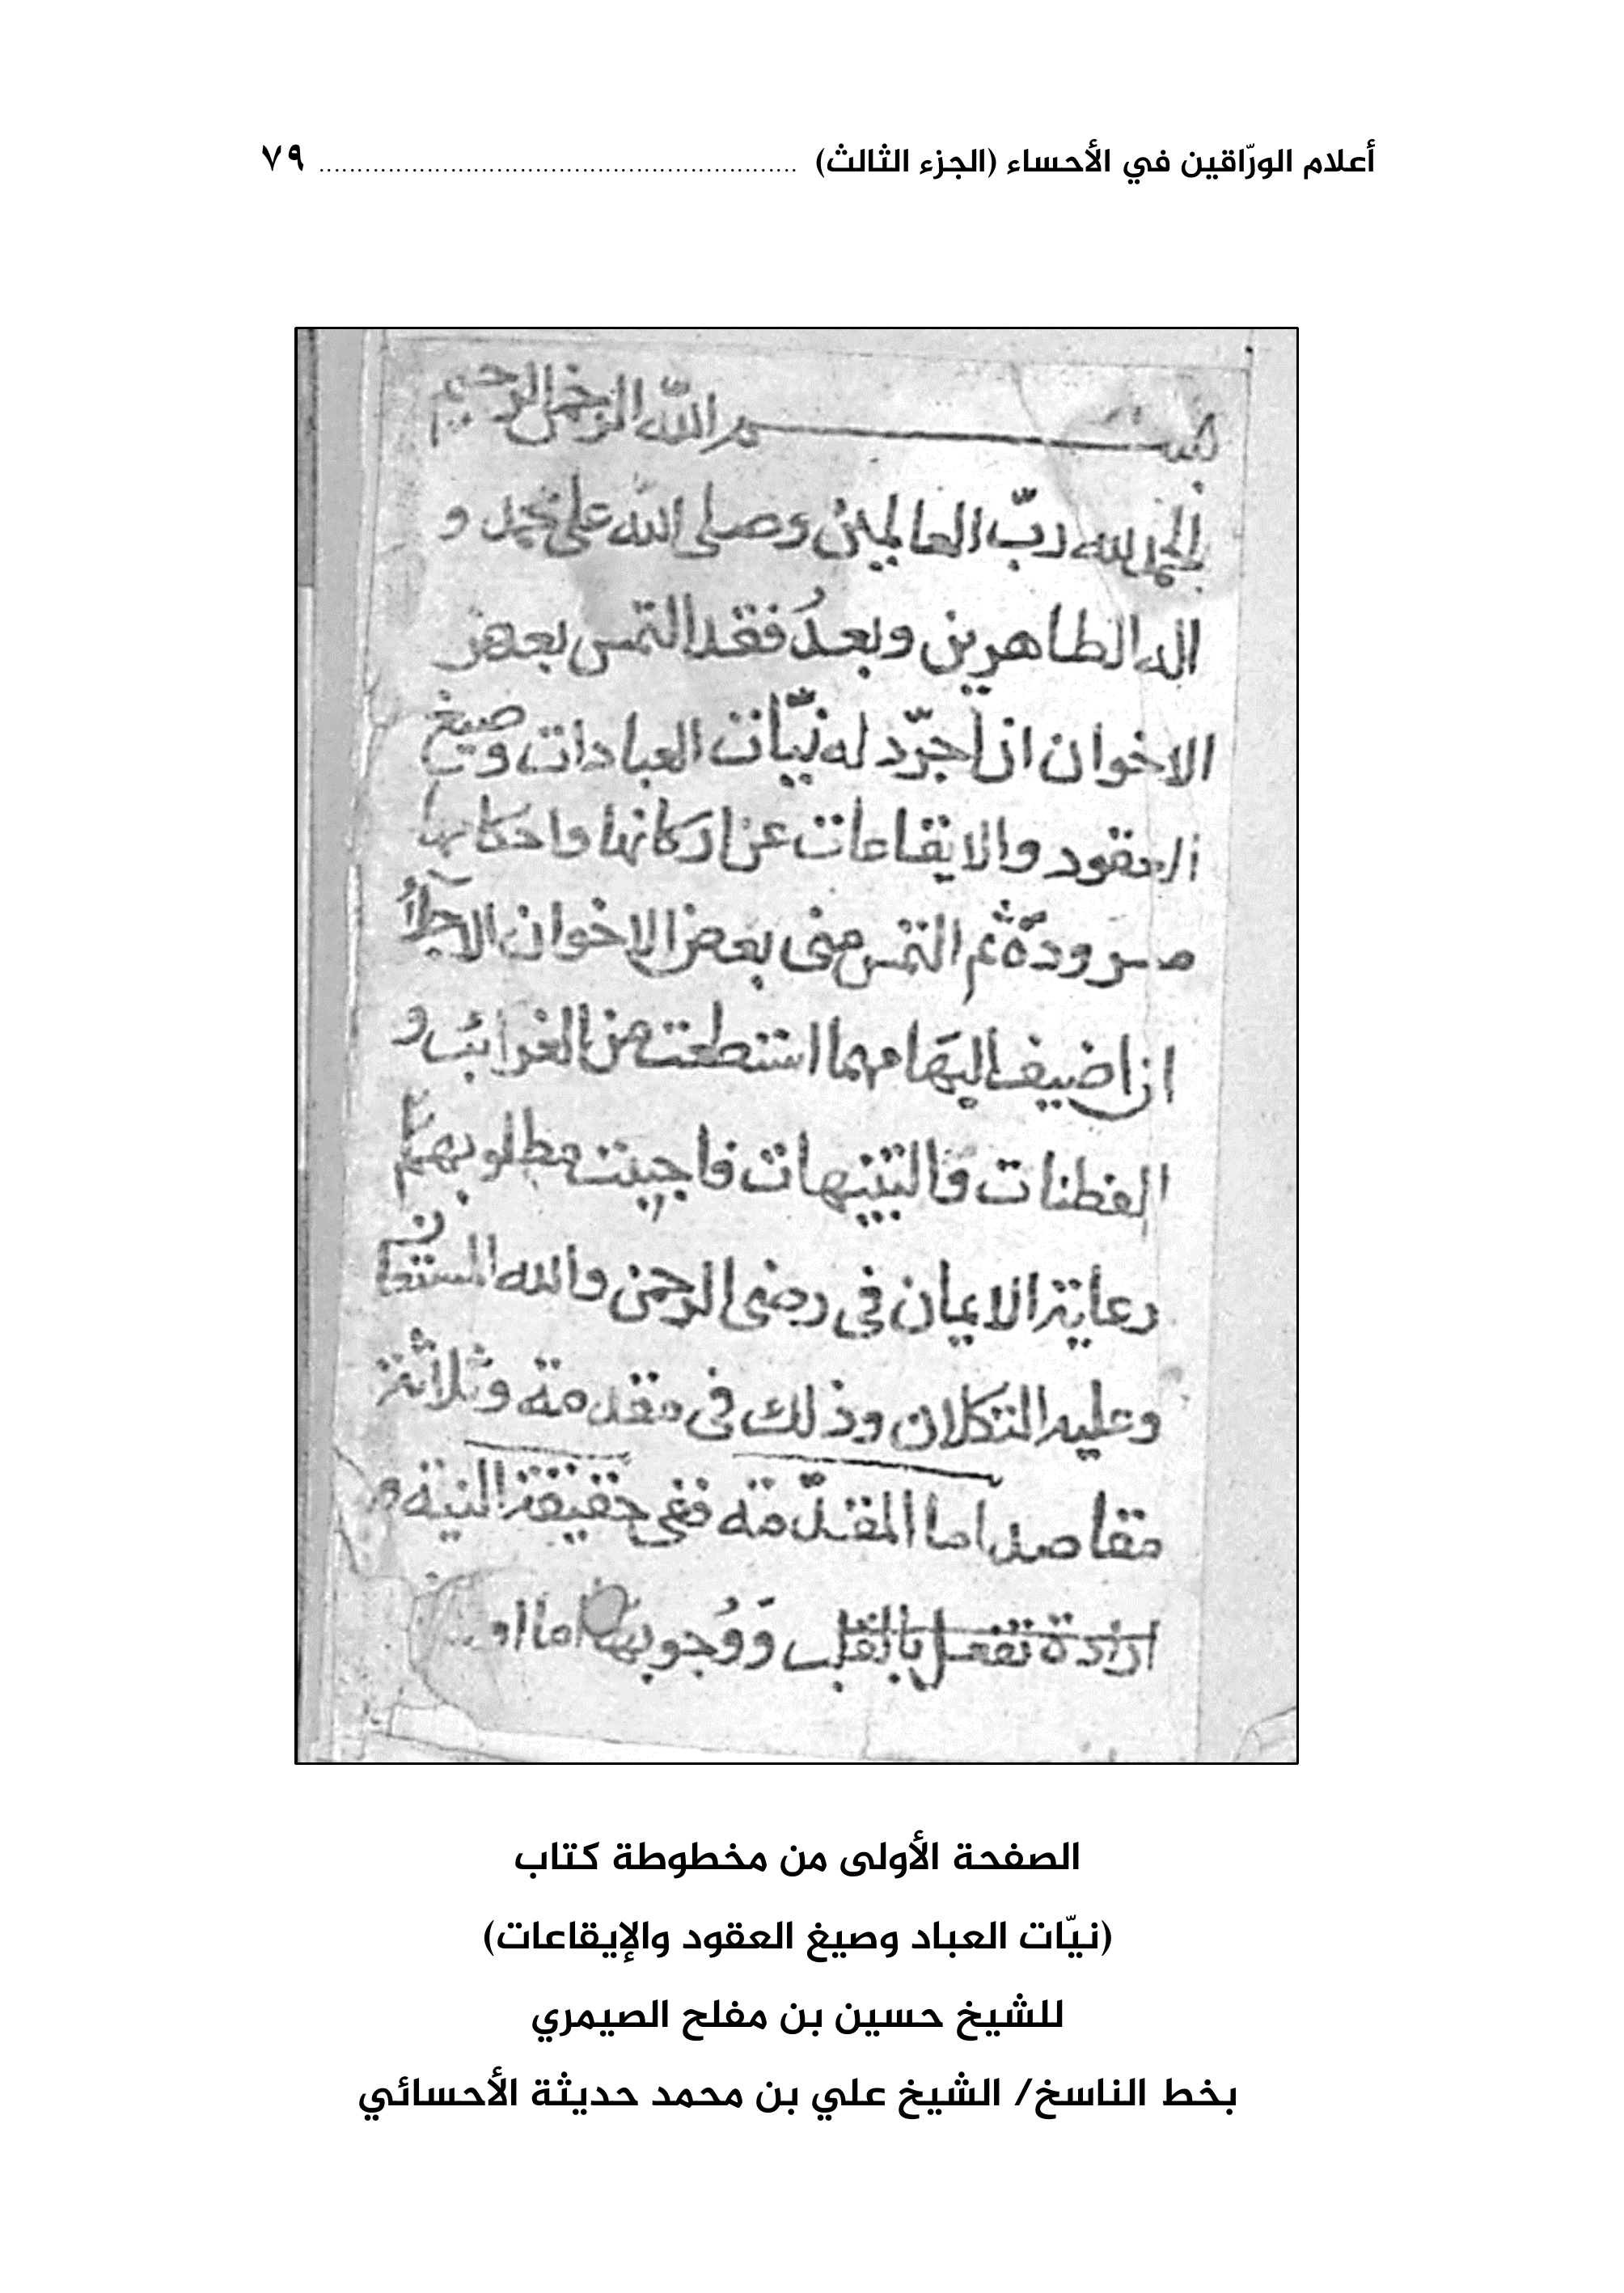 أعلام الورّاقين في الأحساء (الجزء الثالث) ........................................................... ٧٩
بسم الله الرحمن الرحيم
الحمد لله ربّ العالمين وصلى الله على محمد و
اله الطاهرين وبعدُ فقد التمس بعض
الاخوان ان اجرّد له نيّات العبادات وصيغ
العقود والايقاعات عن اركانها واحكامها
مسرودة ثم التمس منى بعض الاخوان الاجلّاء
ان اضيف اليها مهما استطعت من الغرائب و
الفطنات والتنبيهات فاجبت مطلوبهم
رعاية الايمان فى رضى الرحمن والله المستعان
وعليه التكلان وذلك فى مقدمة وثلاثة
مقاصد اما المقدّمة ففى حقيقة النية و
ارادة تفعل بالقلب وَوُجوبها اما
الصفحة الأولى من مخطوطة كتاب
(نيّات العباد وصيغ العقود والإيقاعات)
للشيخ حسين بن مفلح الصيمري
بخط الناسخ/ الشيخ علي بن محمد حديثة الأحسائي